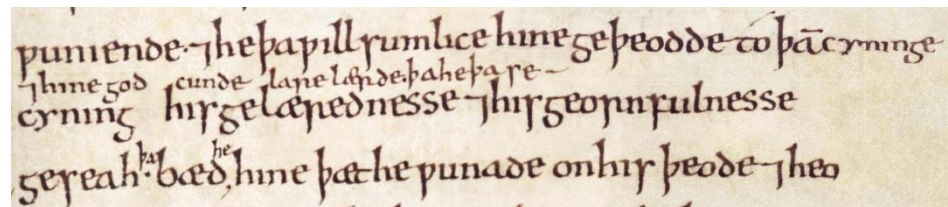 ƿuniende· ⁊ he þa ƿillsumlice hine geþeodde to þā cyninge
⁊ hine god cunde lare lærde· þa he þa se
cyning his gelærednesse ⁊ his geornfulnesse
geseah· þa bæd, he hine þæt he ƿunade on his þeode ⁊ heo